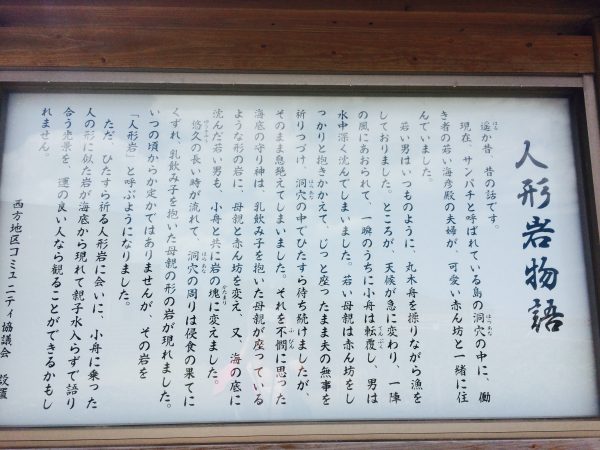 人形岩物語
遥か昔、昔の話です。
現在、サンパチと呼ばれている島の洞穴の中に、働
き者の若い海彦殿の夫婦が、可愛い赤ん坊と一緒に住
んでいました。
若い男はいつものように、丸木舟を操りながら漁を
しておりました。ところが、天候が急に変わり、一陣
の風にあおられて、一瞬のうちに小舟は転覆し、男は
水中深く沈んでしまいました。若い母親は赤ん坊をし
っかりと抱きかかえて、じっと座ったまま夫の無事を
祈りつづけ、洞穴の中でひたすら待ち続けましたが、
そのまま息絶えてしまいました。それを不憫に思った
海底の守り神は、乳飲み子を抱いた母親が座っている
ような形の岩に、母親と赤ん坊を変え、又、海の底に
沈んだ若い男も、小舟と共に岩の塊に変えました。
悠久の長い時が流れて、洞穴の周りは侵食の果てに
くずれ、乳飲み子を抱いた母親の形の岩が現れました。
いつの頃からか定かではありませんが、その岩を
「人形岩」と呼ぶようになりました。
ただ、ひたすら祈る人形岩に会いに、小舟に乗った
人の形に似た岩が海底から現れて親子水入らずで語り
合う光景を、運の良い人なら観ることができるかもし
れません。
西方地区コミュニティ協議会 設置